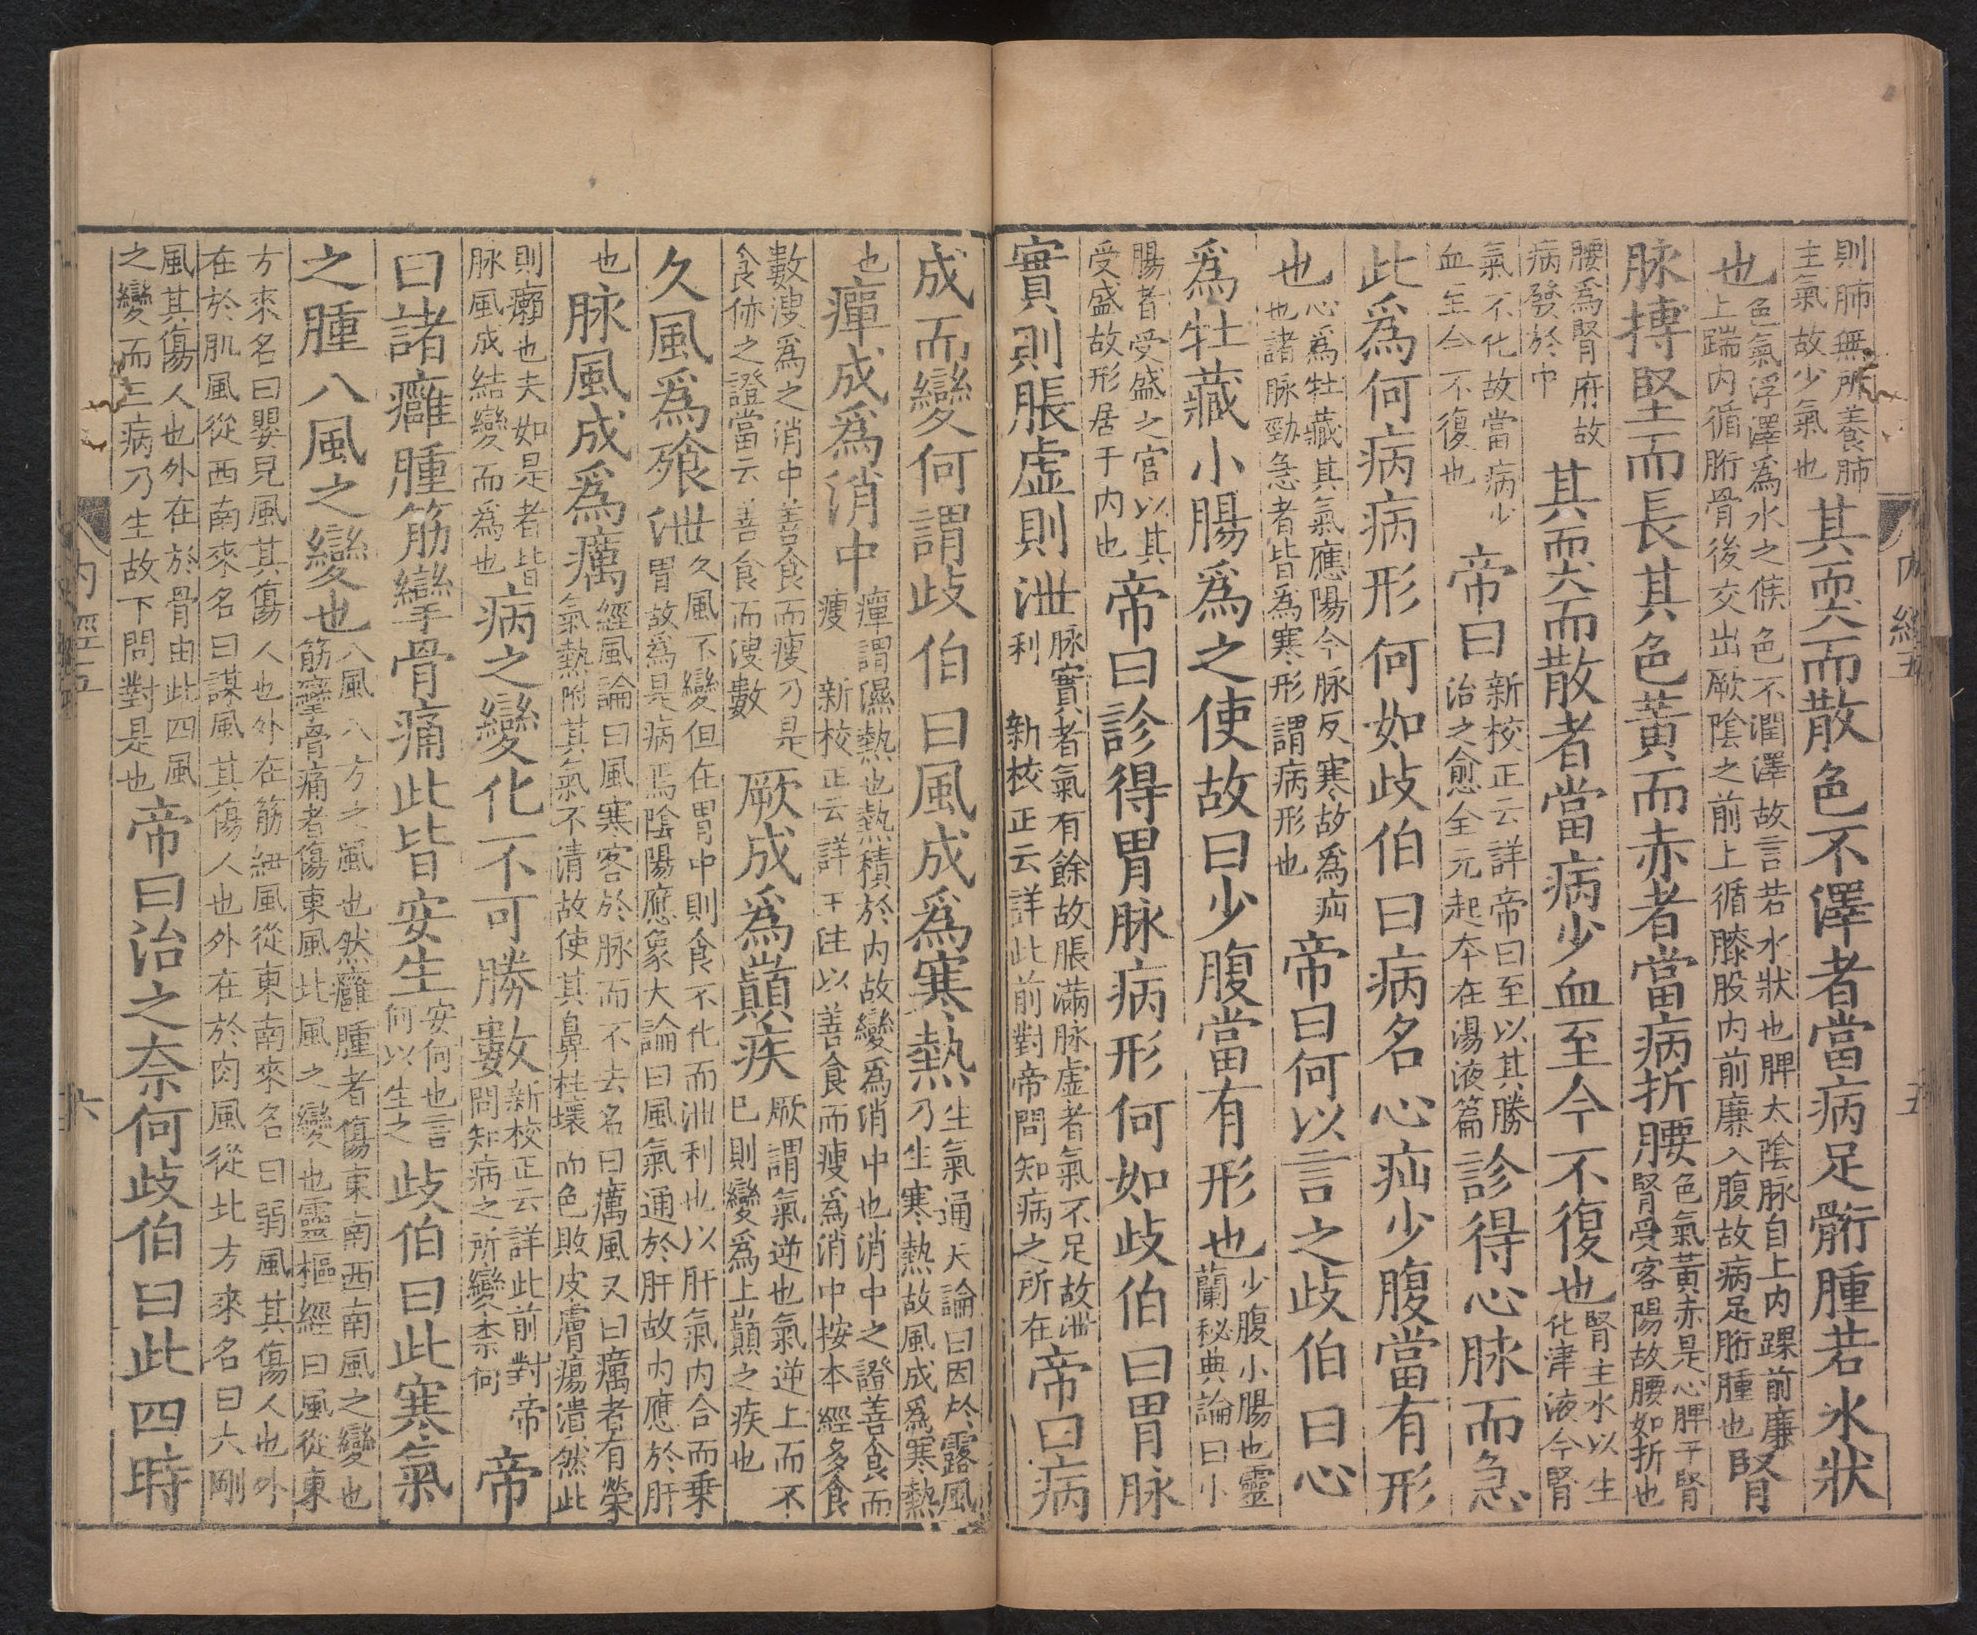 則肺無所養肺
主氣故少氣也
其耎而散色不澤者當病足䯒腫若水狀
也
色氣浮澤爲水之候色不潤澤故言若水狀也脾太陰脉自上內踝前廉
上踹內循䯒骨後交出厥陰之前上循膝股內前廉入腹故病足䯒腫也
腎
脉搏堅而長其色黃而赤者當病折腰
色氣黃赤是心脾干腎
腎受客陽故腰如折也
腰爲腎府故
病發於中
其耎而散者當病少血至今不復也
腎主水以生
化津液今腎
氣不化故當病少
血至今不復也
帝曰
新校正云詳帝曰至以其勝
治之愈全元起本在湯液篇
診得心脉而急
此爲何病病形何如歧伯曰病名心疝少腹當有形
也
心爲牡藏其氣應陽今脉反寒故爲疝
也諸脉勁急者皆爲寒形謂病形也
帝曰何以言之歧伯曰心
爲牡藏小腸爲之使故曰少腹當有形也
少腹小腸也靈
蘭秘典論曰小
腸者受盛之官以其
受盛故形居于內也
帝曰診得胃脉病形何如歧伯曰胃脉
實則脹虛則泄
脉實者氣有餘故脹滿脉虛者氣不足故泄
利　新校正云詳此前對帝問知病之所在
帝曰病
成而變何謂歧伯曰風成爲寒熱
生氣通天論曰因於露風
乃生寒熱故風成爲寒熱
也
癉成爲消中
癉謂濕熱也熱積於內故變爲消中也消中之證善食而
瘦　新校正云詳王注以善食而瘦爲消中按本經多食
數溲爲之消中善食而瘦乃是
食㑊之證當云善食而溲數
厥成爲巔疾
厥謂氣逆也氣逆上而不
已則變爲上巔之疾也
久風爲飧泄
久風不變但在胃中則食不化而泄利也以肝氣內合而乗
胃故爲是病焉陰陽應象大論曰風氣通於肝故內應於肝
也
脉風成爲癘
經風論曰風寒客於脉而不去名曰癘風又曰癘者有榮
氣熱附其氣不清故使其鼻柱壞而色敗皮膚瘍潰然此
則癩也夫如是者皆
脉風成結變而爲也
病之變化不可勝數
新校正云詳此前對帝
問知病之所變柰何
帝
曰諸癰腫筋攣骨痛此皆安生
安何也言
何以生之
歧伯曰此寒氣
之腫八風之變也
八風八方之風也然癰腫者傷東南西南風之變也
筋攣骨痛者傷東風北風之變也靈樞經曰風從東
方來名曰嬰兒風其傷人也外在筋紐風從東南來名曰弱風其傷人也外
在於肌風從西南來名曰謀風其傷人也外在於肉風從北方來名曰大剛
風其傷人也外在於骨由此四風
之變而三病乃生故下問對是也
帝曰治之柰何歧伯曰此四時
內經五
五
內經五
六